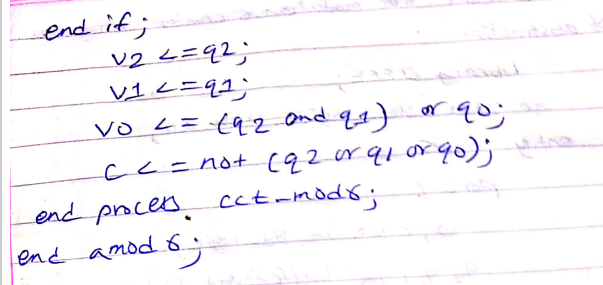 end if;
v2 <= q2;
v1 <= q1;
v0 <= (q2 and q1) or q0;
c <= not (q2 or q1 or q0);
end proces cct-mod6;
end amod 6;